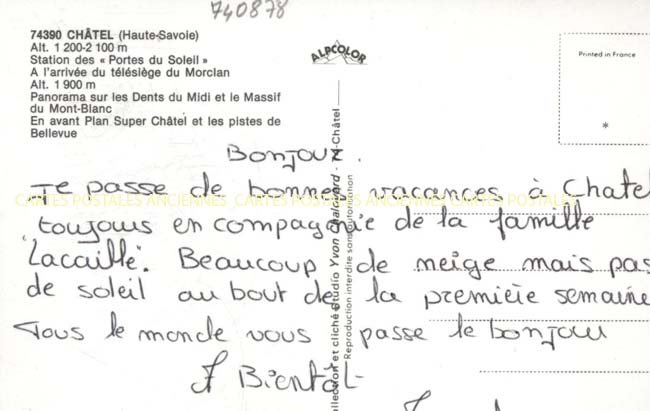 740878
74390 CHÂTEL (Haute-Savoie)
Alt. 1 200-2 100 m
Station des « Portes du Soleil »
A l'arrivée du télésiège du Morclan
Alt. 1 900 m
Panorama sur les Dents du Midi et le Massif
du Mont-Blanc
En avant Plan Super Châtel et les pistes de
Bellevue
ALPCOLOR
Printed in France
*
Bonjour.
Je passe de bonnes vacances à Chatel
toujours en compagnie de la famille
Lacaille. Beaucoup de neige mais pas
de soleil au bout de la première semaine
Tous le monde vous passe le bonjour
A Bientôt
CARTES POSTALES ANCIENNES CARTES POSTALES ANCIENNES CARTES POSTALES
Collection et cliché Studio Yvon
Châtel
Reproduction interdite sans autorisation